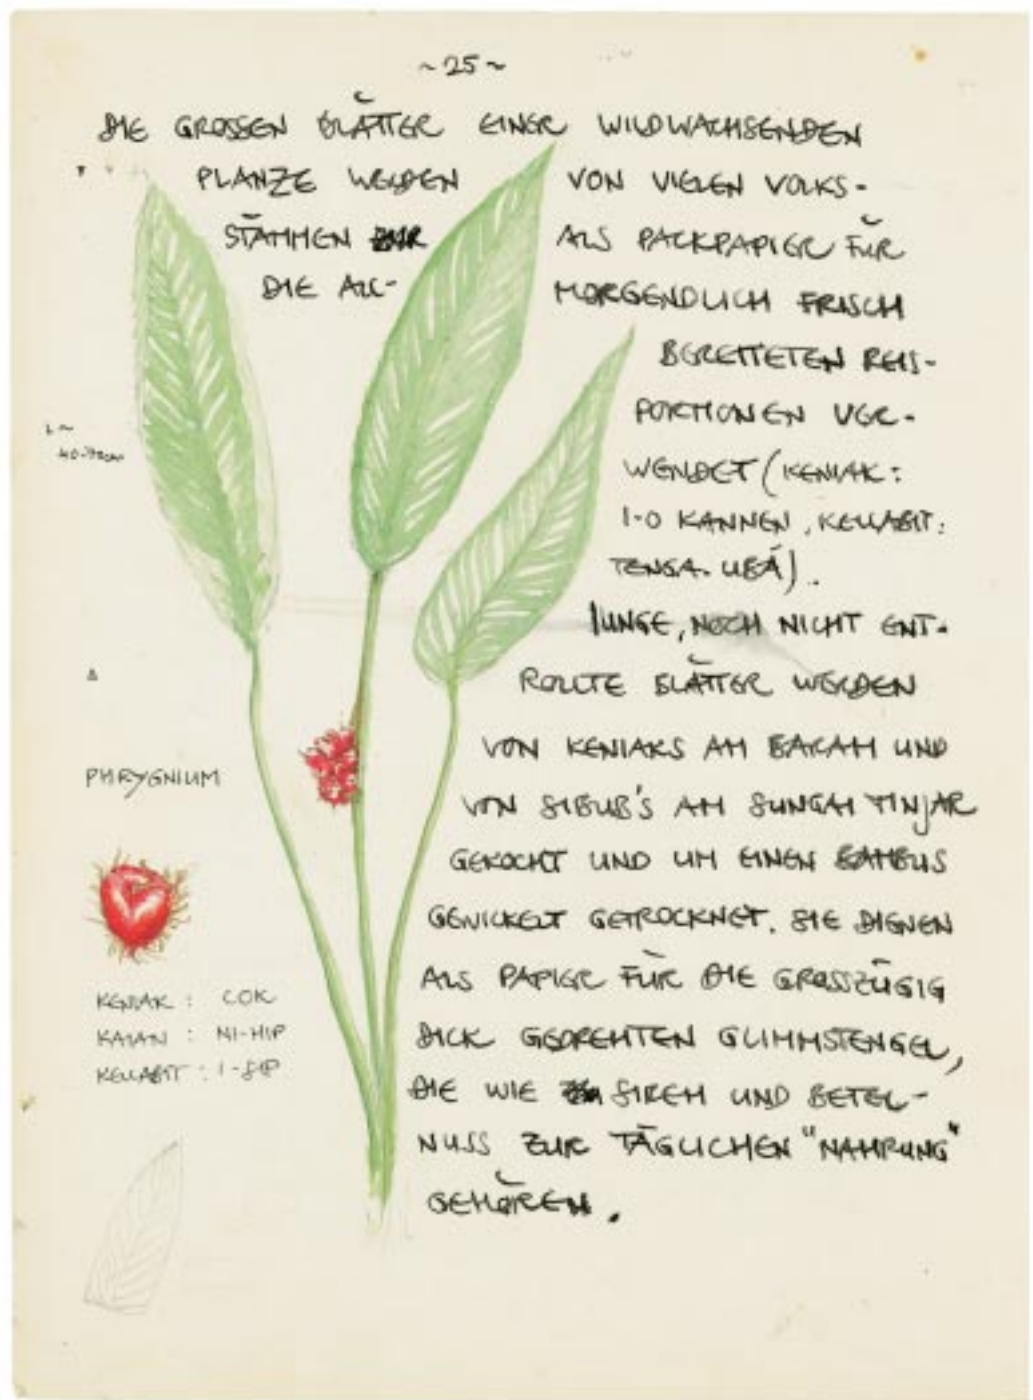 ~25~
DIE GROSSEN BLÄTTER EINER WILDWACHSENDEN
PLANZE WERDEN VON VIELEN VOLKS-
STÄMMEN ALS PACKPAPIER FÜR
DIE ALL- MORGENDLICH FRISCH
BEREITETEN REIS-
PORTIONEN VER-
WENDET (KENIAK:
I-O KANNEN, KELLABIT:
TENGA. UBÄ).
JUNGE, NOCH NICHT ENT-
ROLLTE BLÄTTER WERDEN
VON KENIAKS AM BARAM UND
VON SIBUB'S AM SUNGAI TINJAR
GEKOCHT UND UM EINEN BAMBUS
GEWICKELT GETROCKNET. SIE DIENEN
ALS PAPIER FÜR DIE GROSSZÜGIG
DICK GEDREHTEN GLIMMSTENGEL,
DIE WIE SIREH UND BETEL-
NUSS ZUR TÄGLICHEN "NAHRUNG"
GEHÖREN.
PHRYGNIUM
KENIAK : COK
KAIAN : NI-HIP
KELLABIT : I-SIP